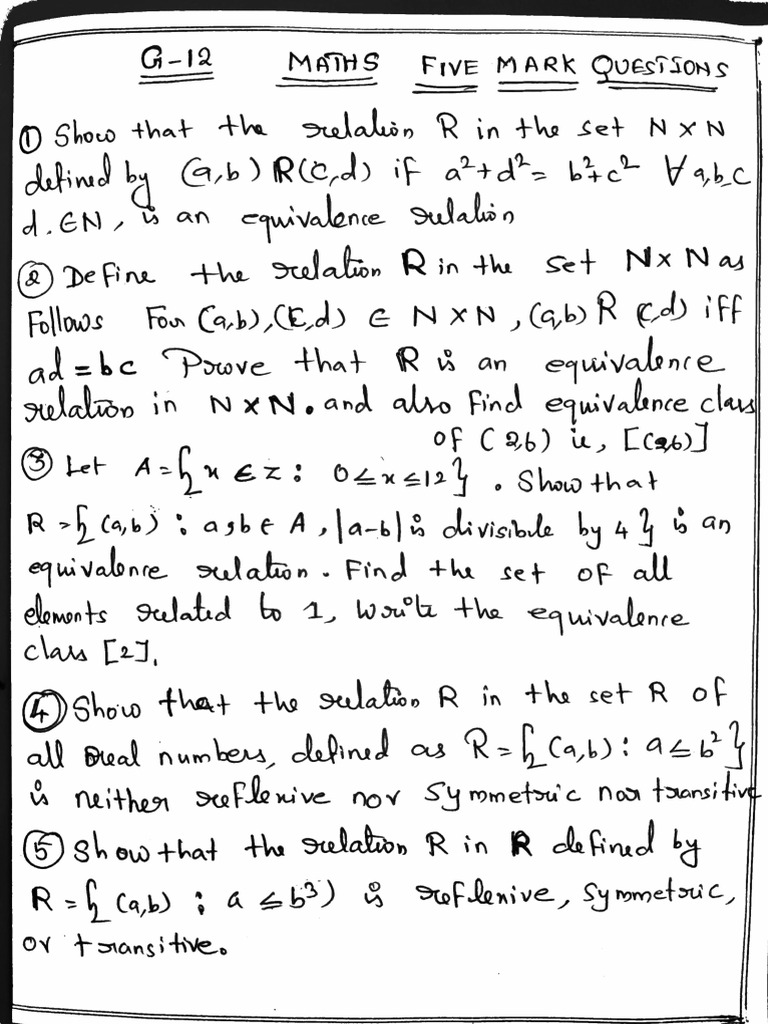 G-12 MATHS FIVE MARK QUESTIONS
① Show that the relation R in the set N×N
defined by (a,b) R(c,d) if a²+d² = b²+c² ∀ a,b,c
d. ∈N, is an equivalence relation
② Define the relation R in the set N×N as
Follows For (a,b),(c,d) ∈ N×N, (a,b) R (c,d) iff
ad = bc Prove that R is an equivalence
relation in N×N. and also Find equivalence class
of (2,6) ie, [(2,6)]
③ Let A = { x ∈ Z : 0≤x≤12 } . Show that
R = { (a,b) : a,b ∈ A, |a-b| is divisible by 4 } is an
equivalence relation. Find the set of all
elements related to 1, write the equivalence
class [2].
④ Show that the relation R in the set R of
all real numbers, defined as R = { (a,b) : a ≤ b² }
is neither reflexive nor symmetric nor transitive
⑤ Show that the relation R in R defined by
R = { (a,b) : a ≤ b³) is reflexive, symmetric,
or transitive.